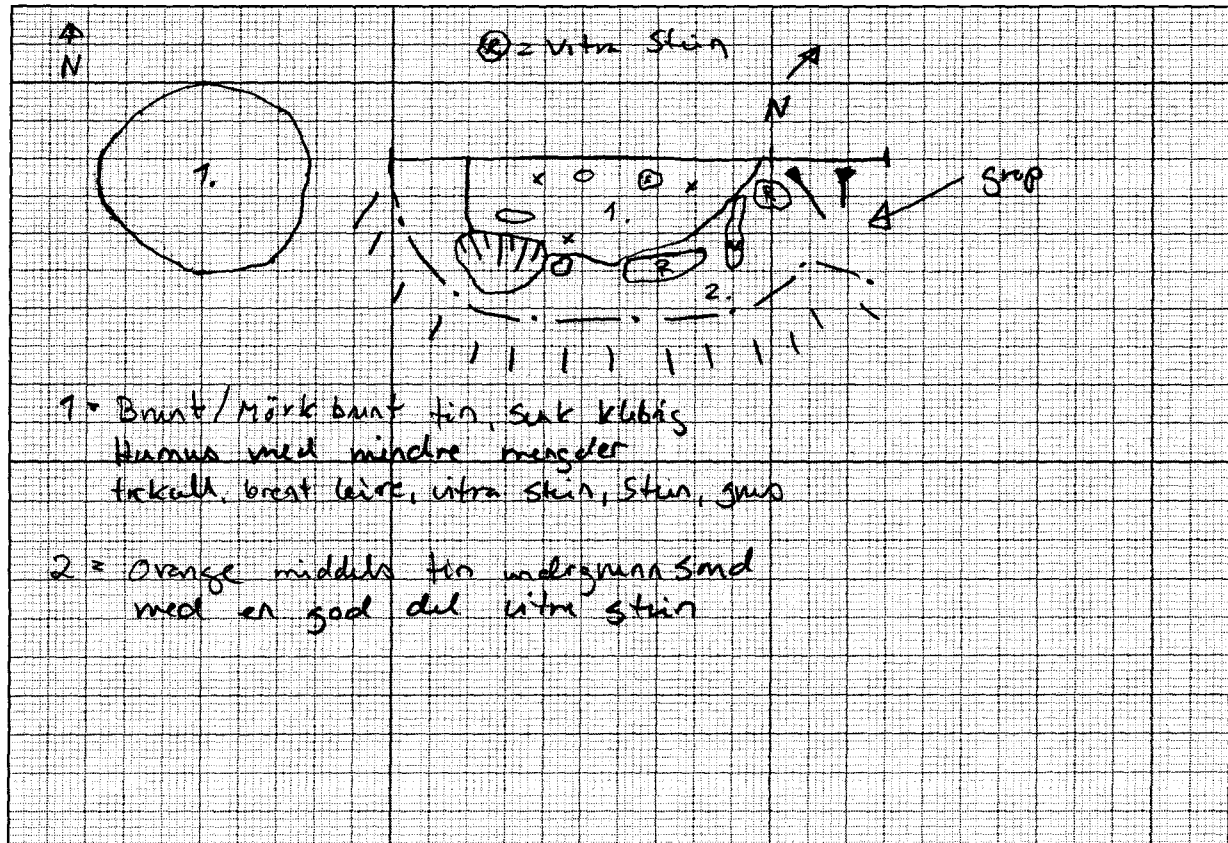 N
Ⓡ = Vitra Stein
N
1.
1.
R
R
2.
grop
1 = Brunt / Mörk brunt fin, svak klebrig
Humus med mindre mengder
trekull, brent leire, vitra stein, Stein, grus
2 = Orange middels fin undergrunn sand
med en god del vitra stein